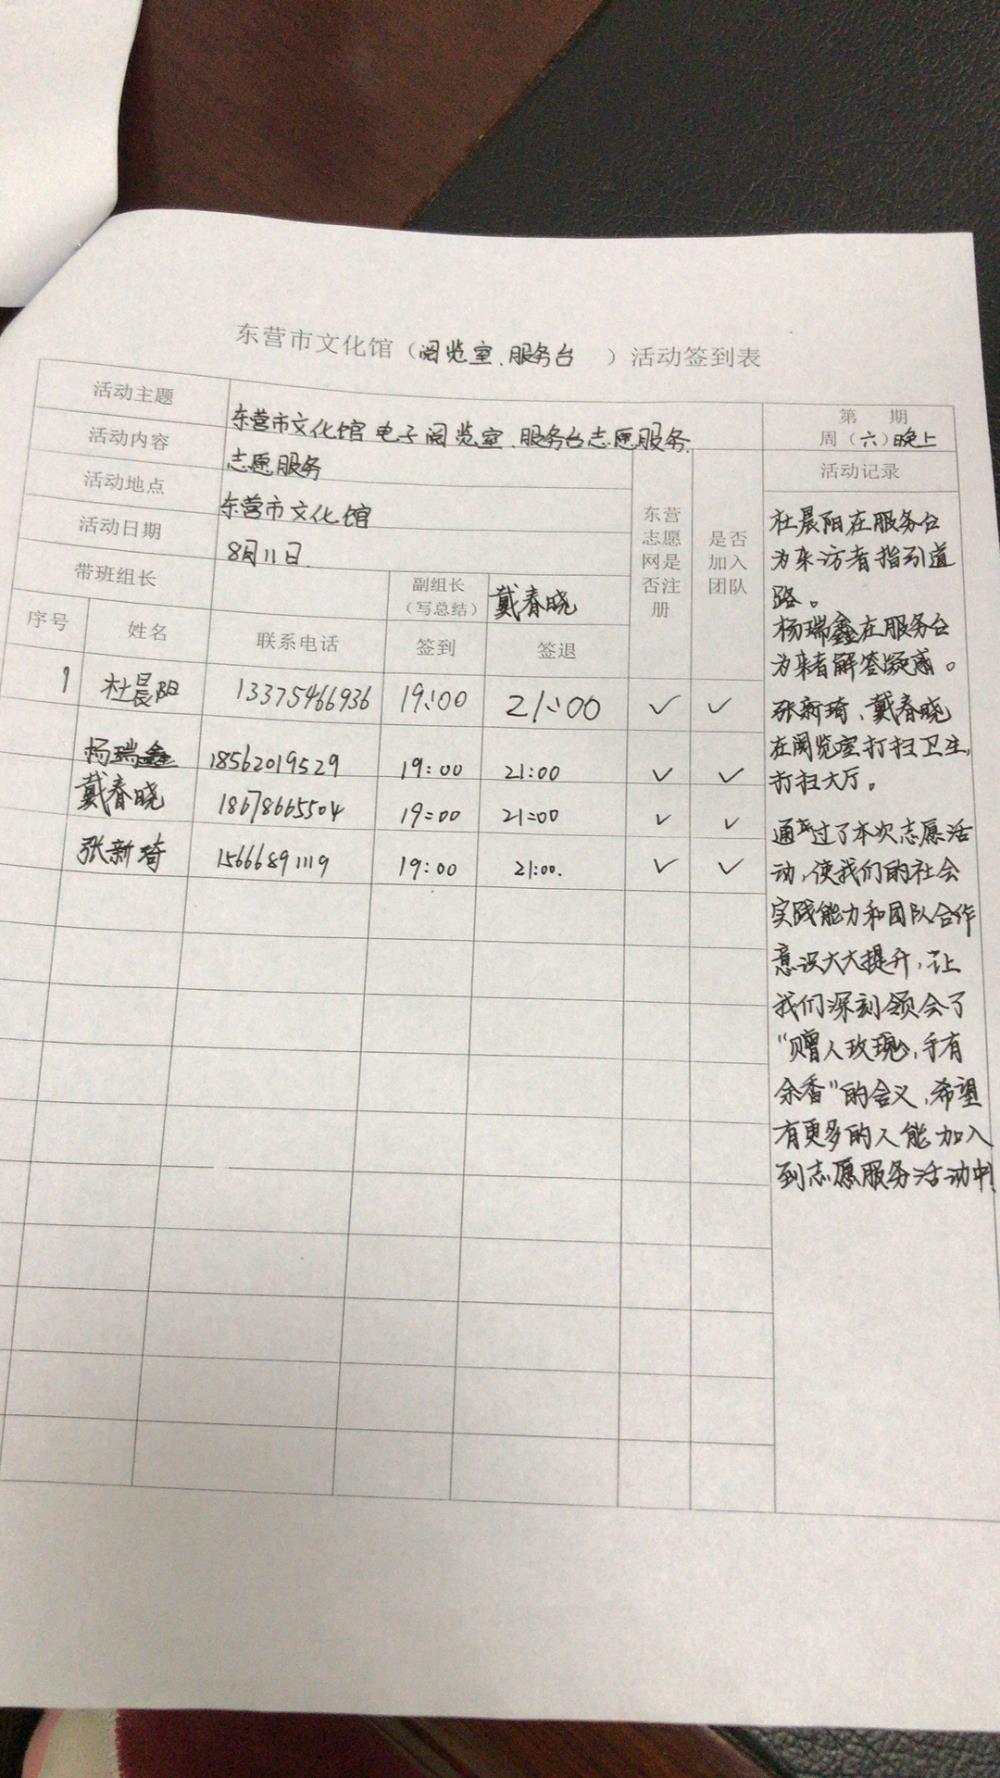 东营市文化馆（阅览室、服务台 ）活动签到表
活动主题
东营市文化馆电子阅览室、服务台志愿服务
第 期
周（六）晚上
活动内容
志愿服务
活动地点
东营市文化馆
活动日期
8月11日
带班组长
副组长
（写总结）
戴春晓
东营
志愿
网是
否注
册
是否
加入
团队
活动记录
序号 姓名 联系电话 签到 签退
1 杜晨阳 13375466936 19:00 21:00 ✓ ✓
杨瑞鑫 18562019529 19:00 21:00 ✓ ✓
戴春晓 18678665504 19:00 21:00 ✓ ✓
张新琦 15666891119 19:00 21:00. ✓ ✓
杜晨阳在服务台
为来访者指引道
路。
杨瑞鑫在服务台
为来者解答疑惑。
张新琦、戴春晓
在阅览室打扫卫生,
打扫大厅。
通过了本次志愿活
动,使我们的社会
实践能力和团队合作
意识大大提升,让
我们深刻领会了
“赠人玫瑰,手有
余香”的含义,希望
有更多的人能加入
到志愿服务活动中!